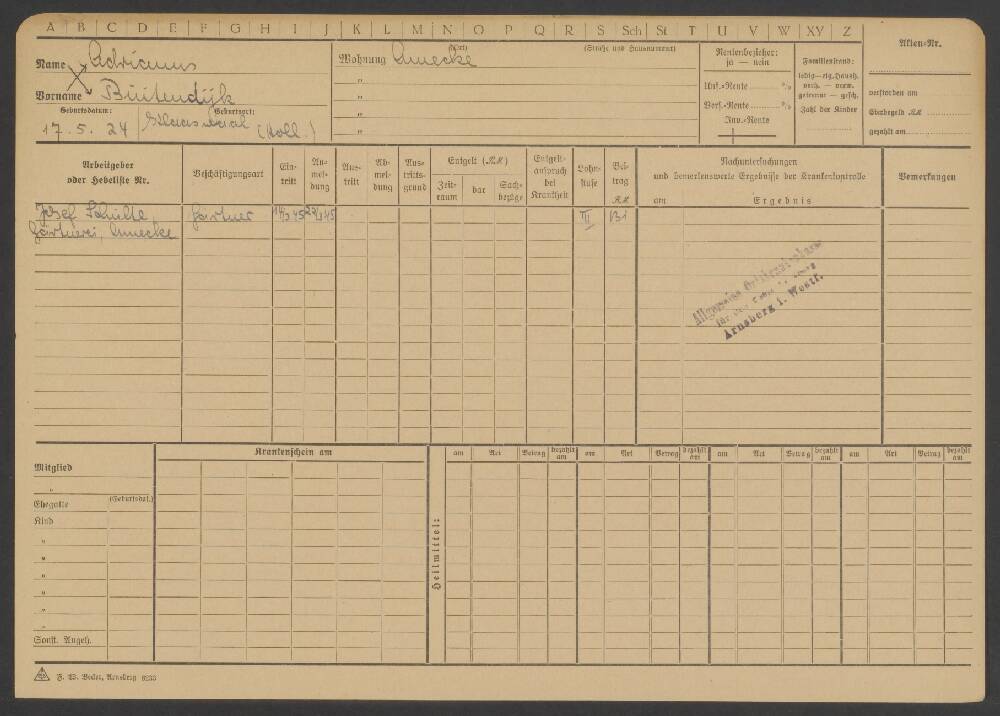 A B C D E F G H I J K L M N O P Q R S Sch St T U V W XY Z
Name Adrianus
Vorname Buitendijk
Geburtsdatum: Geburtsort:
17. 5. 24 (Holl.)
(Ort) (Straße und Hausnummer)
Wohnung Annecke
"
"
"
"
Rentenbezieher:
ja — nein
Unf.-Rente %
Vers.-Rente %
Inv.-Rente
Familienstand:
ledig—eig. Haush.
verh. — verw.
getrennt — gesch.
Zahl der Kinder
Akten-Nr.
verstorben am
Sterbegeld RM
gezahlt am
Arbeitgeber
oder Hebeliste Nr.
Beschäftigungsart
Ein-
tritt
An-
mel-
dung
Aus-
tritt
Ab-
mel-
dung
Aus-
tritts-
grund
Entgelt (RM)
Zeit-
raum
bar
Sach-
bezüge
Entgelt-
anspruch
bei
Krankheit
Lohn-
stufe
Bei-
trag
RM
Nachuntersuchungen
und bemerkenswerte Ergebnisse der Krankenkontrolle
am Ergebnis
Bemerkungen
Josef Schulte, Gärtner III
Gärtnerei, Annecke
Allgemeine Ortskrankenkasse
für den
Arnsberg i. Westf.
Krankenschein am
Mitglied
"
Ehegatte (Geburtsdat.)
Kind
"
"
"
"
"
"
Sonst. Angeh.
Heilmittel:
am Art Betrag bezahlt am am Art Betrag bezahlt am am Art Betrag bezahlt am am Art Betrag bezahlt am
F. W. Becker, Arnsberg 6233